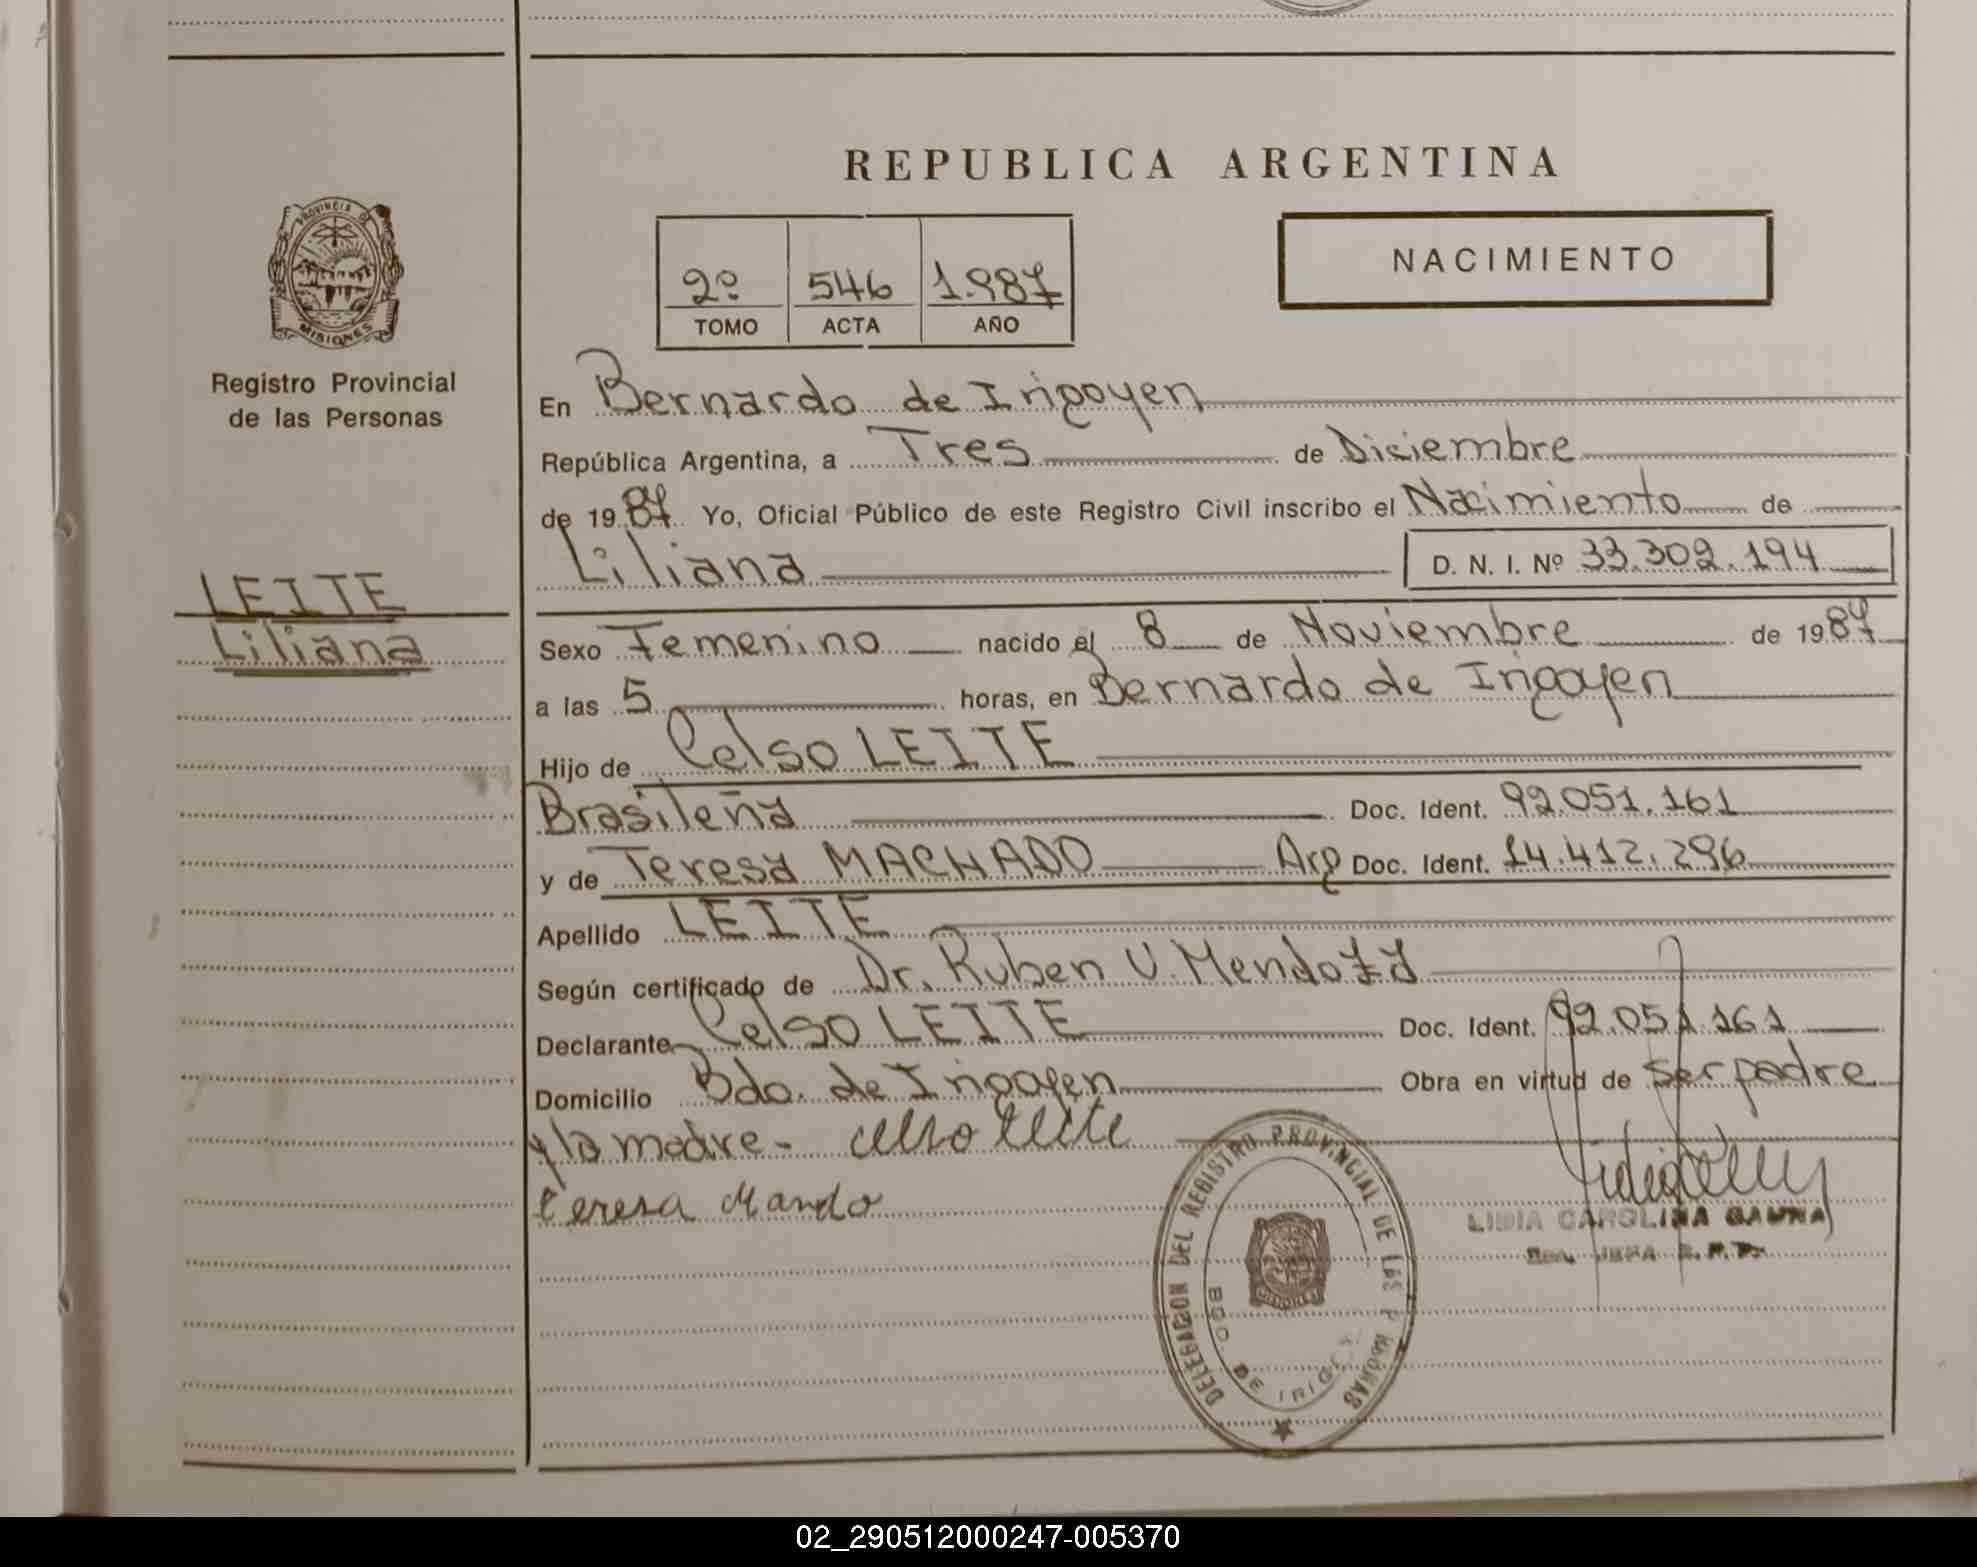 REPUBLICA ARGENTINA
PROVINCIA DE
MISIONES
Registro Provincial
de las Personas
2º 546 1.987
TOMO ACTA AÑO
NACIMIENTO
En Bernardo de Irigoyen
República Argentina, a Tres de Diciembre
de 1987 Yo, Oficial Público de este Registro Civil inscribo el Nacimiento de
Liliana D. N. I. Nº 33.302.194
LEITE
Liliana
Sexo Femenino nacido el 8 de Noviembre de 1987
a las 5 horas, en Bernardo de Irigoyen
Hijo de Celso LEITE
Brasileña Doc. Ident. 92.051.161
y de Teresa MACHADO Arg Doc. Ident. 14.412.296
Apellido LEITE
Según certificado de Dr. Ruben V. Mendoza
Declarante Celso LEITE Doc. Ident. 92.051.161
Domicilio Bdo. de Irigoyen Obra en virtud de ser padre
y la madre - celso leite
teresa Mando
DELEGACION DEL REGISTRO PROVINCIAL DE LAS PERSONAS
BDO. DE IRIGOY
MISIONES
LIDIA CAROLINA GAUNA
02_290512000247-005370